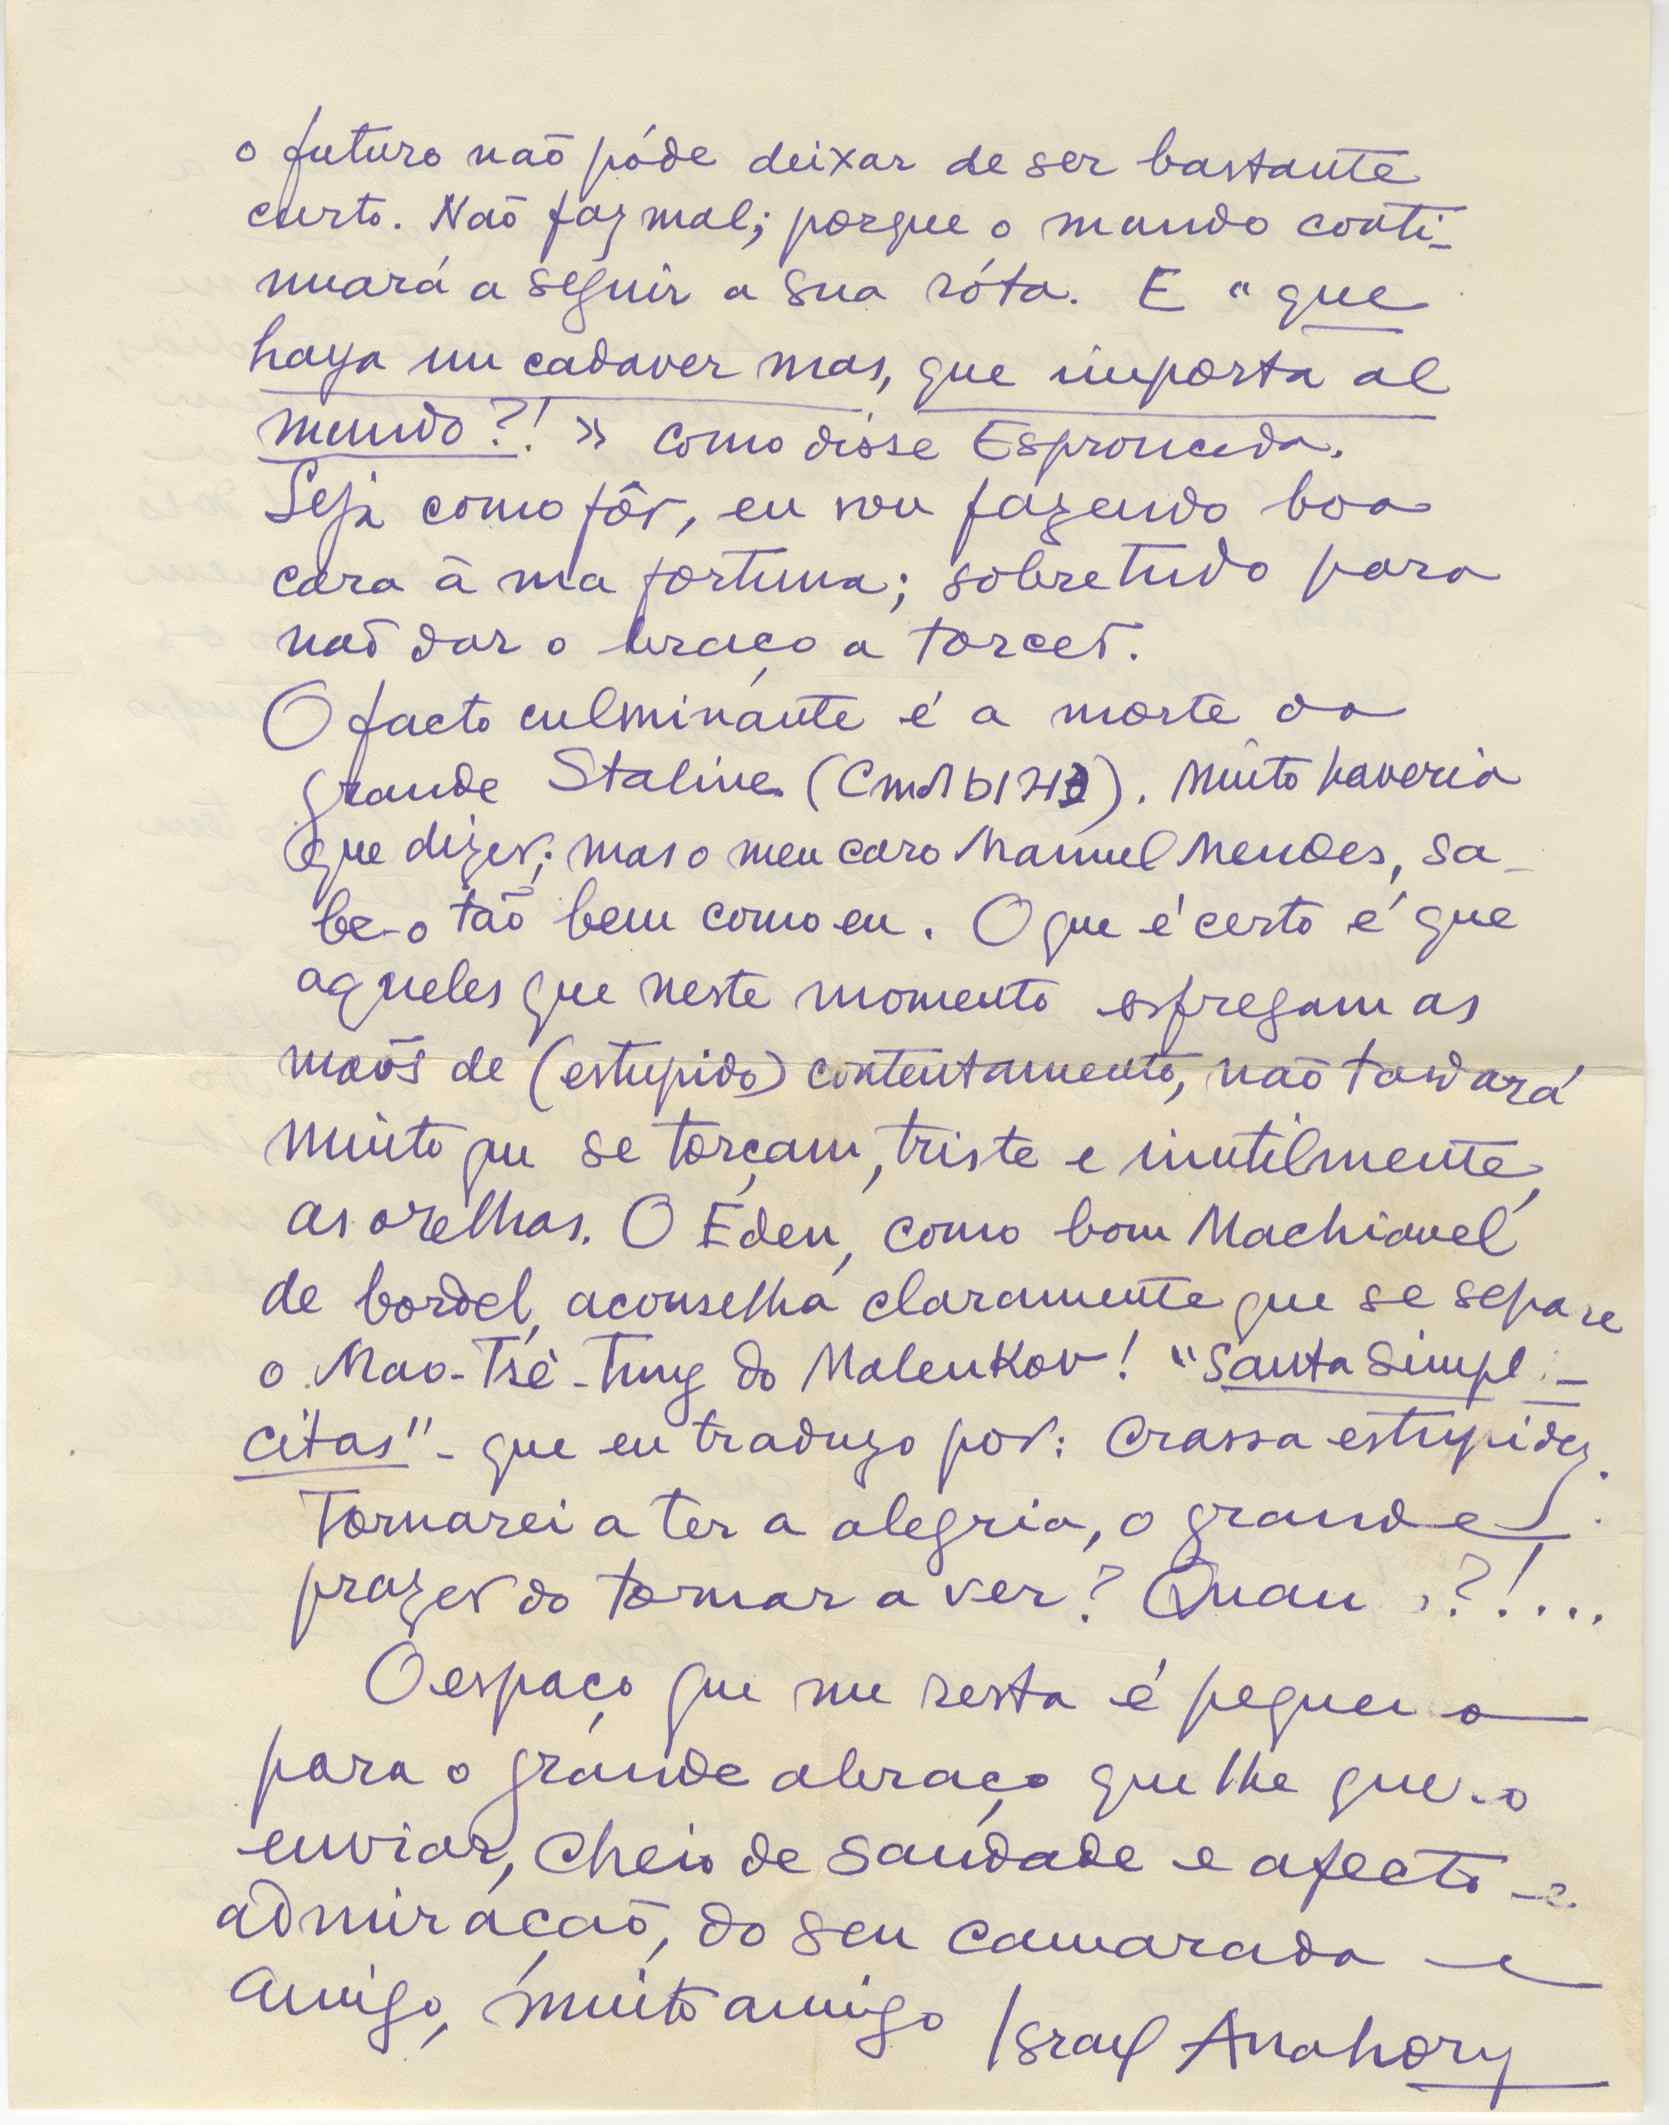 o futuro não póde deixar de ser bastante
curto. Não faz mal; porque o mundo conti-
nuará a seguir a sua róta. E "que
haya un cadaver mas, que importa al
mundo?!» como disse Espronceda.
Seja como fôr, eu vou fazendo boa
cara à ma fortuna; sobretudo para
não dar o braço a torcer.
O facto culminante é a morte do
grande Staline ( ). Muito haveria
que dizer; mas o meu caro Manuel Mendes, sa-
be-o tão bem como eu. O que é certo é que
aqueles que neste momento esfregam as
mãos de (estupido) contentamento, não tardará
muito que se torçam, triste e inutilmente,
as orelhas. O Éden, como bom Machiavel
de bordel, aconselha claramente que se separe
o Mao-Tsé-Tung do Malenkov! "Santa Simpl -
citas" - que eu traduzo por: crassa estupidez.
Tornarei a ter a alegria, o grande
prazer do tornar a ver? Quan ?!...
O espaço que me resta é pequeno
para o grande abraço que lhe quero
enviar, cheio de saudade e afecto e
admiração, do seu camarada e
amigo, muito amigo Israel Anahory